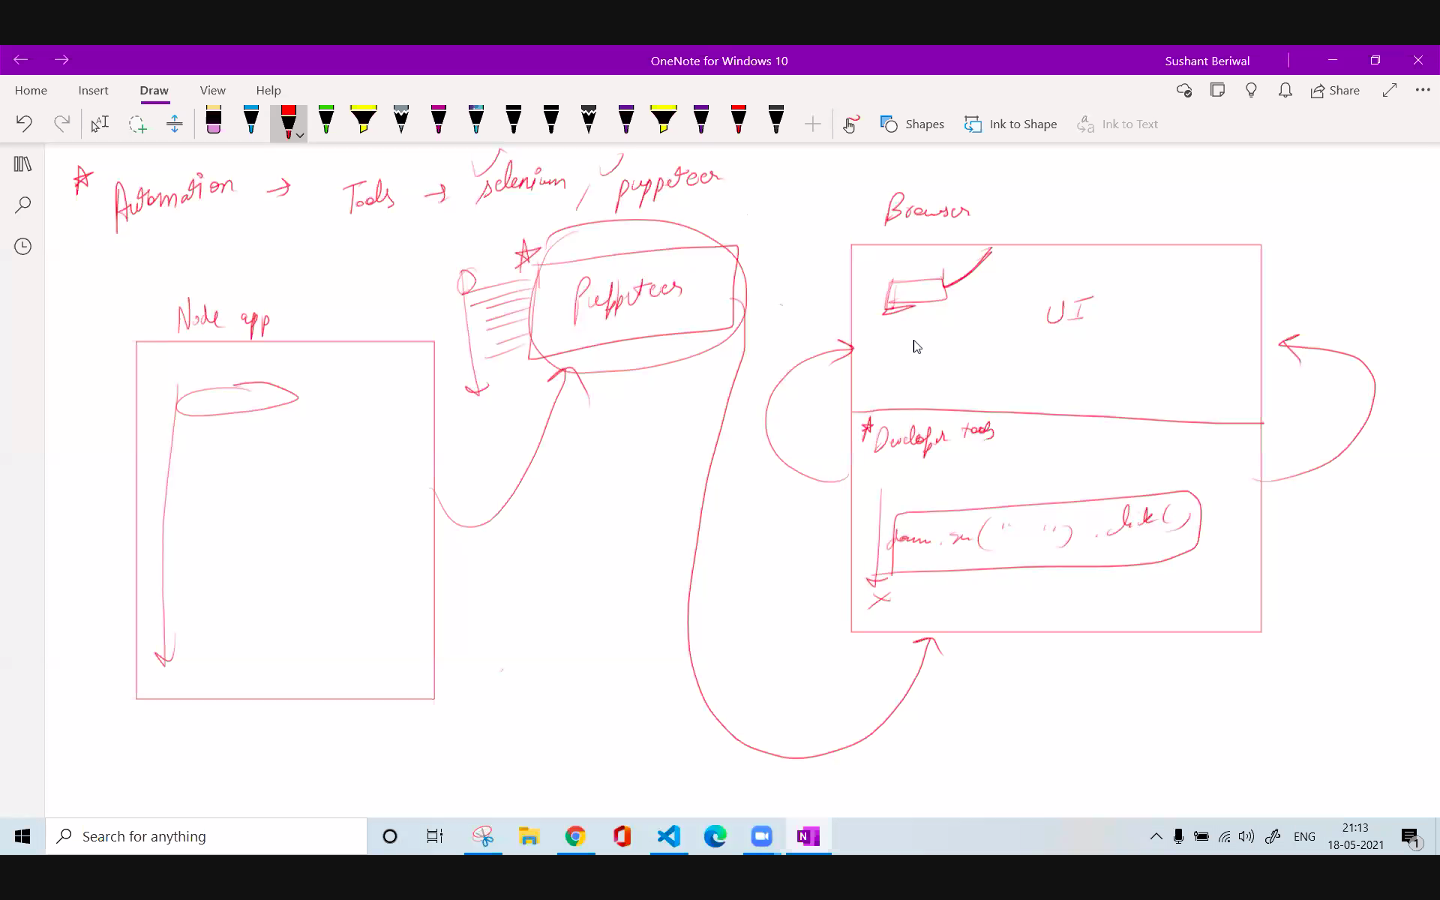 OneNote for Windows 10
Sushant Beriwal
Home Insert Draw View Help
Share
Shapes Ink to Shape Ink to Text
Automation → Tools → selenium, puppeteer
Browser
Puppeteer
UI
Node app
Developer tools
.click()
Search for anything
ENG
21:13
18-05-2021
1